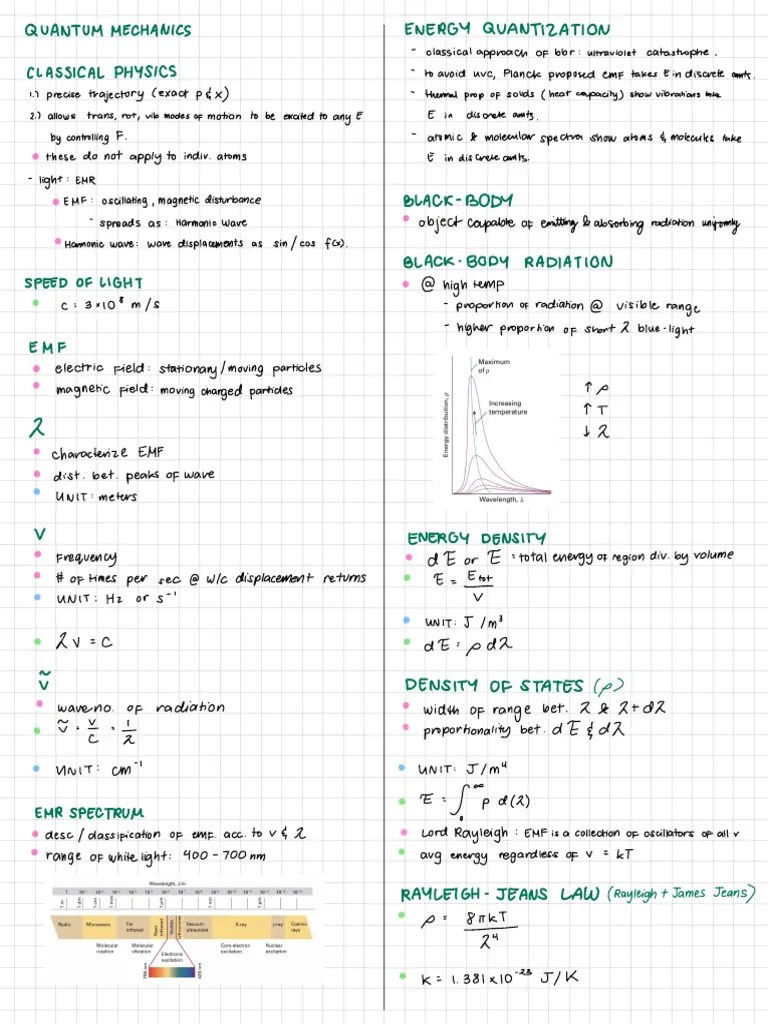 QUANTUM MECHANICS
CLASSICAL PHYSICS
1.) precise trajectory (exact p & x)
2.) allows trans, rot, vib modes of motion to be excited to any E
by controlling F.
these do not apply to indiv. atoms
- light: EMR
EMF: oscillating, magnetic disturbance
- spreads as: Harmonic wave
Harmonic wave: wave displacements as sin/cos f(x).
SPEED OF LIGHT
c = 3×10⁸ m/s
EMF
electric field: stationary/moving particles
magnetic field: moving charged particles
λ
characterize EMF
dist. bet. peaks of wave
UNIT: meters
ν
Frequency
# of times per sec @ w/c displacement returns
UNIT: Hz or s⁻¹
λν = c
ν̃
wave no. of radiation
ν̃ = ν/c = 1/λ
UNIT: cm⁻¹
EMR SPECTRUM
desc/classification of emf. acc. to ν & λ
range of white light: 400 - 700 nm
Wavelength, λ/m
Radio Microwave Far infrared Near infrared Visible Ultraviolet Vacuum ultraviolet X-ray γ-ray Cosmic rays
Molecular rotation Molecular vibration Electronic excitation Core-electron excitation Nuclear excitation
ENERGY QUANTIZATION
- classical approach of bbr: ultraviolet catastrophe.
- to avoid uvc, Planck proposed emf takes E in discrete amts.
- thermal prop of solids (heat capacity) show vibrations take
E in discrete amts.
- atomic & molecular spectra show atoms & molecules take
E in discrete amts.
BLACK-BODY
object capable of emitting & absorbing radiation uniformly
BLACK-BODY RADIATION
@ high temp
- proportion of radiation @ visible range
- higher proportion of short λ blue-light
Maximum
of ρ
Increasing
temperature
Energy distribution, ρ
Wavelength, λ
↑ ρ
↑ T
↓ λ
ENERGY DENSITY
dE or E = total energy of region div. by volume
E = Etot/V
UNIT: J/m³
dE = ρ dλ
DENSITY OF STATES (ρ)
width of range bet. λ & λ + dλ
proportionality bet. dE & dλ
UNIT: J/m⁴
E = ∫₀^∞ ρ d(λ)
Lord Rayleigh: EMF is a collection of oscillators of all ν
avg energy regardless of ν = kT
RAYLEIGH-JEANS LAW (Rayleigh + James Jeans)
ρ = 8πkT/λ⁴
k = 1.381×10⁻²³ J/K